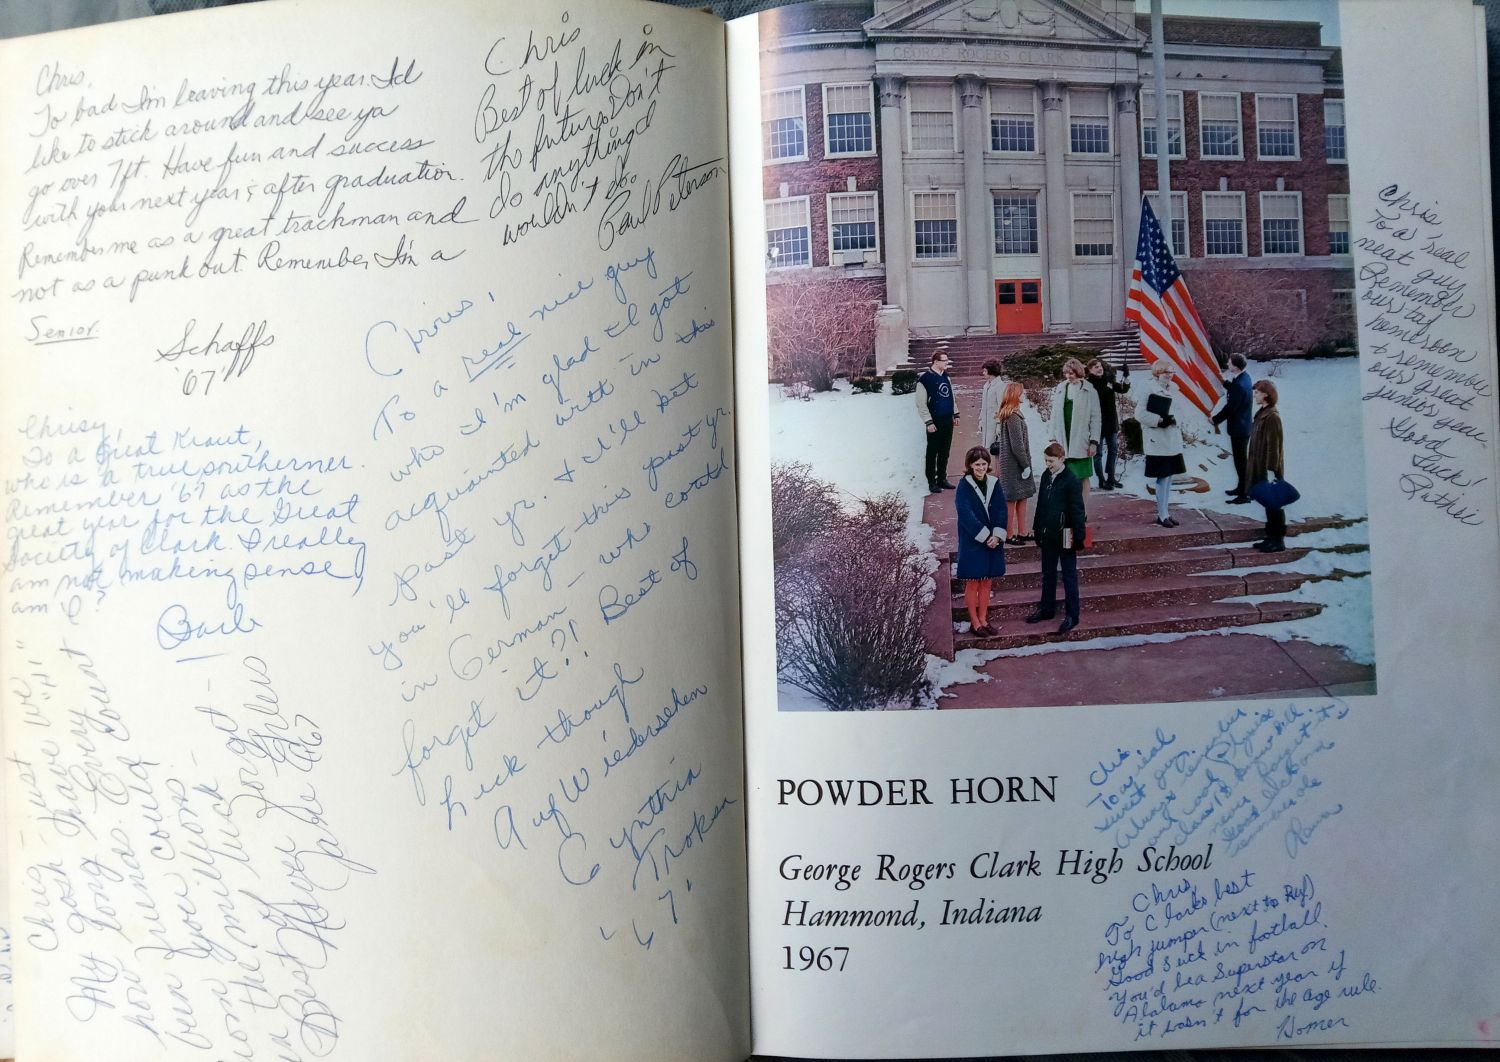 Chris,
To bad I'm leaving this year. I'd
like to stick around and see ya
go over 7ft. Have fun and success
with your next year & after graduation.
Remember me as a great trackman and
not as a punk out. Remember, I'm a
Senior.
Schaffs
'67'
Chris
Best of luck in
the future. Don't
do anything I
wouldn't do.
Paul Peterson
Chris,
To a real nice guy
who I'm glad I got
acquainted with in this
past yr. & I'll bet
you'll forget this past yr.
in German - who could
forget it?! Best of
luck though
Auf Wiedersehen
Cynthia
Troksa
'67'
Chrisy,
To a great Kraut,
who is a true southerner.
Remember '67 as the
great year for the Great
Society of Clark. I really
am not making sense,
am I?
Barb
Chris - just we "H"
My gosh - have
long Every
how friends. could
been over
million -
the luck forget -
Best
67
GEORGE ROGERS CLARK SCHOOL
Chris,
To a real
neat guy
Remember
our
homeroom
& remember
our great
junior year
Good
Luck!
Kathie
POWDER HORN
George Rogers Clark High School
Hammond, Indiana
1967
Chris
To a real
sweet guy.
Always remember
and
class
never forget it
Good luck
To Chris,
To Clarks best
high jumper (next to Ruf)
Good Luck in football.
You'd be a Superstar on
Alabama next year if
it wasn't for the age rule.
Homer